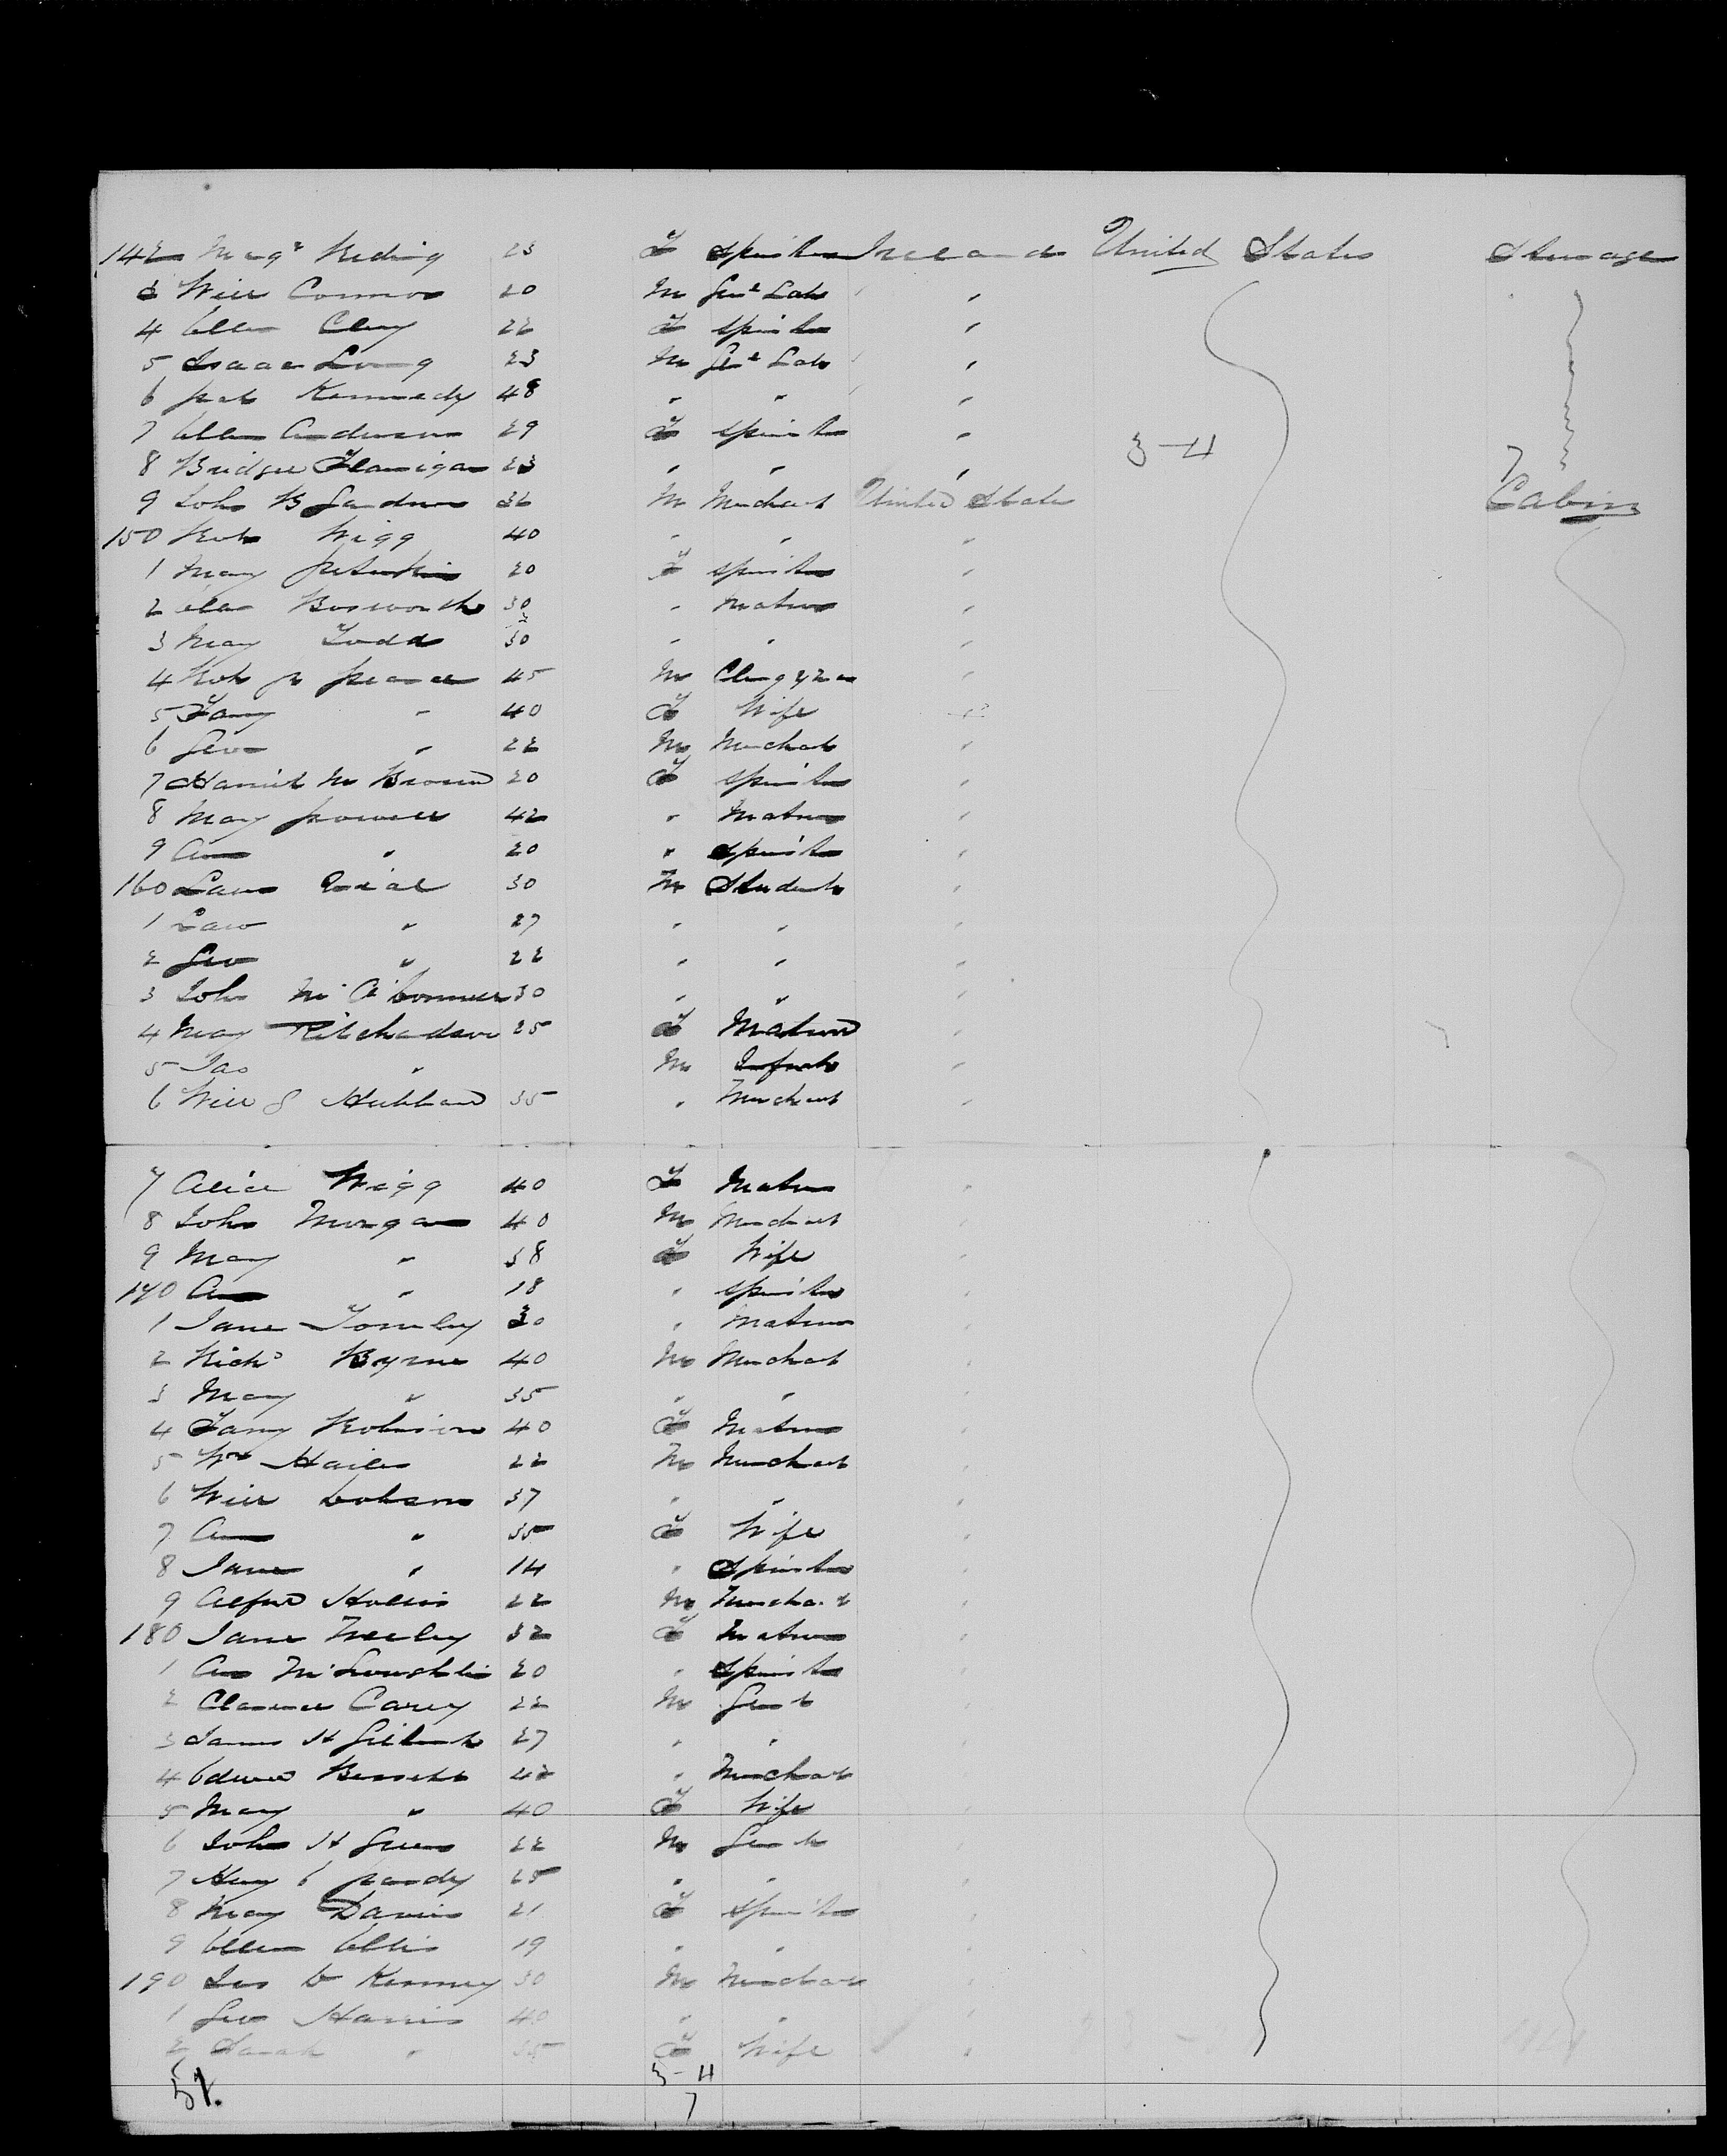 142 Marg't Reding 23 F Spinster Ireland United States Steerage
3 Will Connor 20 M Gen'l Lab "
4 Ellen Clery 22 F Spinster "
5 Isaac Long 23 M Ge'l Lab "
6 Pat Kennedy 48 " " "
7 Ellen Anderson 29 F Spinster "
8 Bridget Flanigan 23 " " " 3-4 7
9 John B Gardner 32 M Merchant United States Cabin
150 Rob Wigg 40 " " "
1 Mary 20 F Spinster "
2 Bosworth 30 " Matron "
3 Mary Todd 30 " " "
4 Rob P 45 M Clergyman "
5 Fany " 40 F Wife "
6 Geo " 22 M Merchant "
7 Harriet M Brown 20 F Spinster "
8 Mary Power 42 " Matron "
9 Ann " 20 " Spinster "
160 30 M Student "
1 Law " 27 " " "
2 Geo " 22 " " "
3 John 30 " " "
4 Mary Ritchadson 25 F Matron "
5 Jas " M Infant "
6 Will Hubbard 35 " Merchant "
7 Alice Wigg 40 F Matron "
8 John Morgan 40 M Merchant "
9 Mary " 38 F Wife "
170 Ann " 18 " Spinster "
1 Jane 30 " Matron "
2 Rich'd Byrne 40 M Merchant "
3 Mary " 35 " " "
4 Fany Robinson 40 F Matron "
5 Wm Hailes 22 M Merchant "
6 Will Dobson 37 " " "
7 Ann " 35 F Wife "
8 Jane " 14 " Spinster "
9 Alfred Hollis 22 M Merchant "
180 Jane Neeley 32 F Matron "
1 Ann McLoughlin 20 " Spinster "
2 Clarence Carey 22 M Gent "
3 James H Gilbert 27 " " "
4 Edward Bennett 42 " Merchant "
5 Mary " 40 F Wife "
6 John H Green 22 M Gent "
7 25 " " "
8 Mary Davis 21 F Spinster "
9 Ellen Ellis 19 " " "
190 30 M Merchant "
1 Geo Harris 40 " " "
2 Sarah " 35 F Wife "
51. 3-4
7